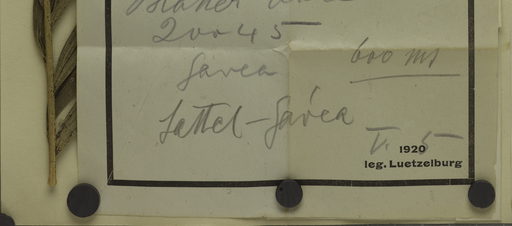 20045
Gavea
600 ms
Sattel-Gávea
V. 5
1920
leg. Luetzelburg